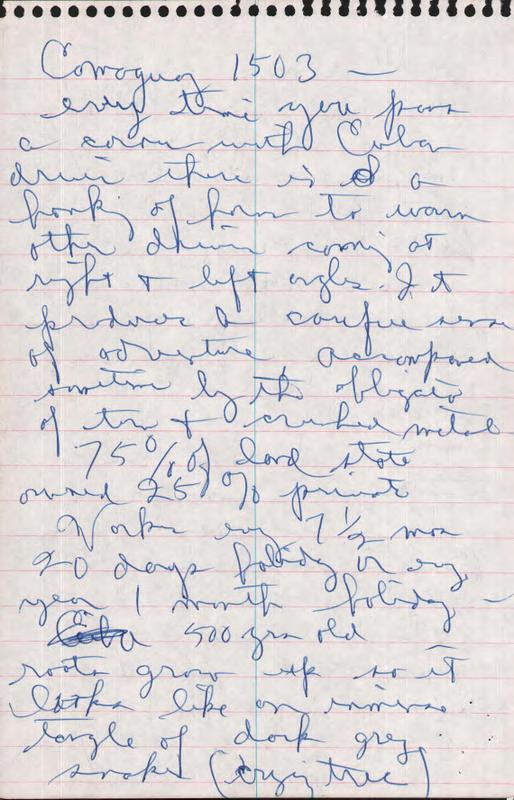 Comoguey 1503 —
every time you pass
a corner with Cuban
driver there is a
honking of horn to warn
other driver coming at
right + left angles. It
produces a confuse sense
of adventure accompanied
sometime by the obligato
of torn + crushed metal
75% of land state
owned 25% private
Works every 7 1/2 mos
20 days holiday or every
year 1 month holiday —
500 yrs old
roots grow up so it
looks like an immense
tangle of dark grey
snakes ( tree)